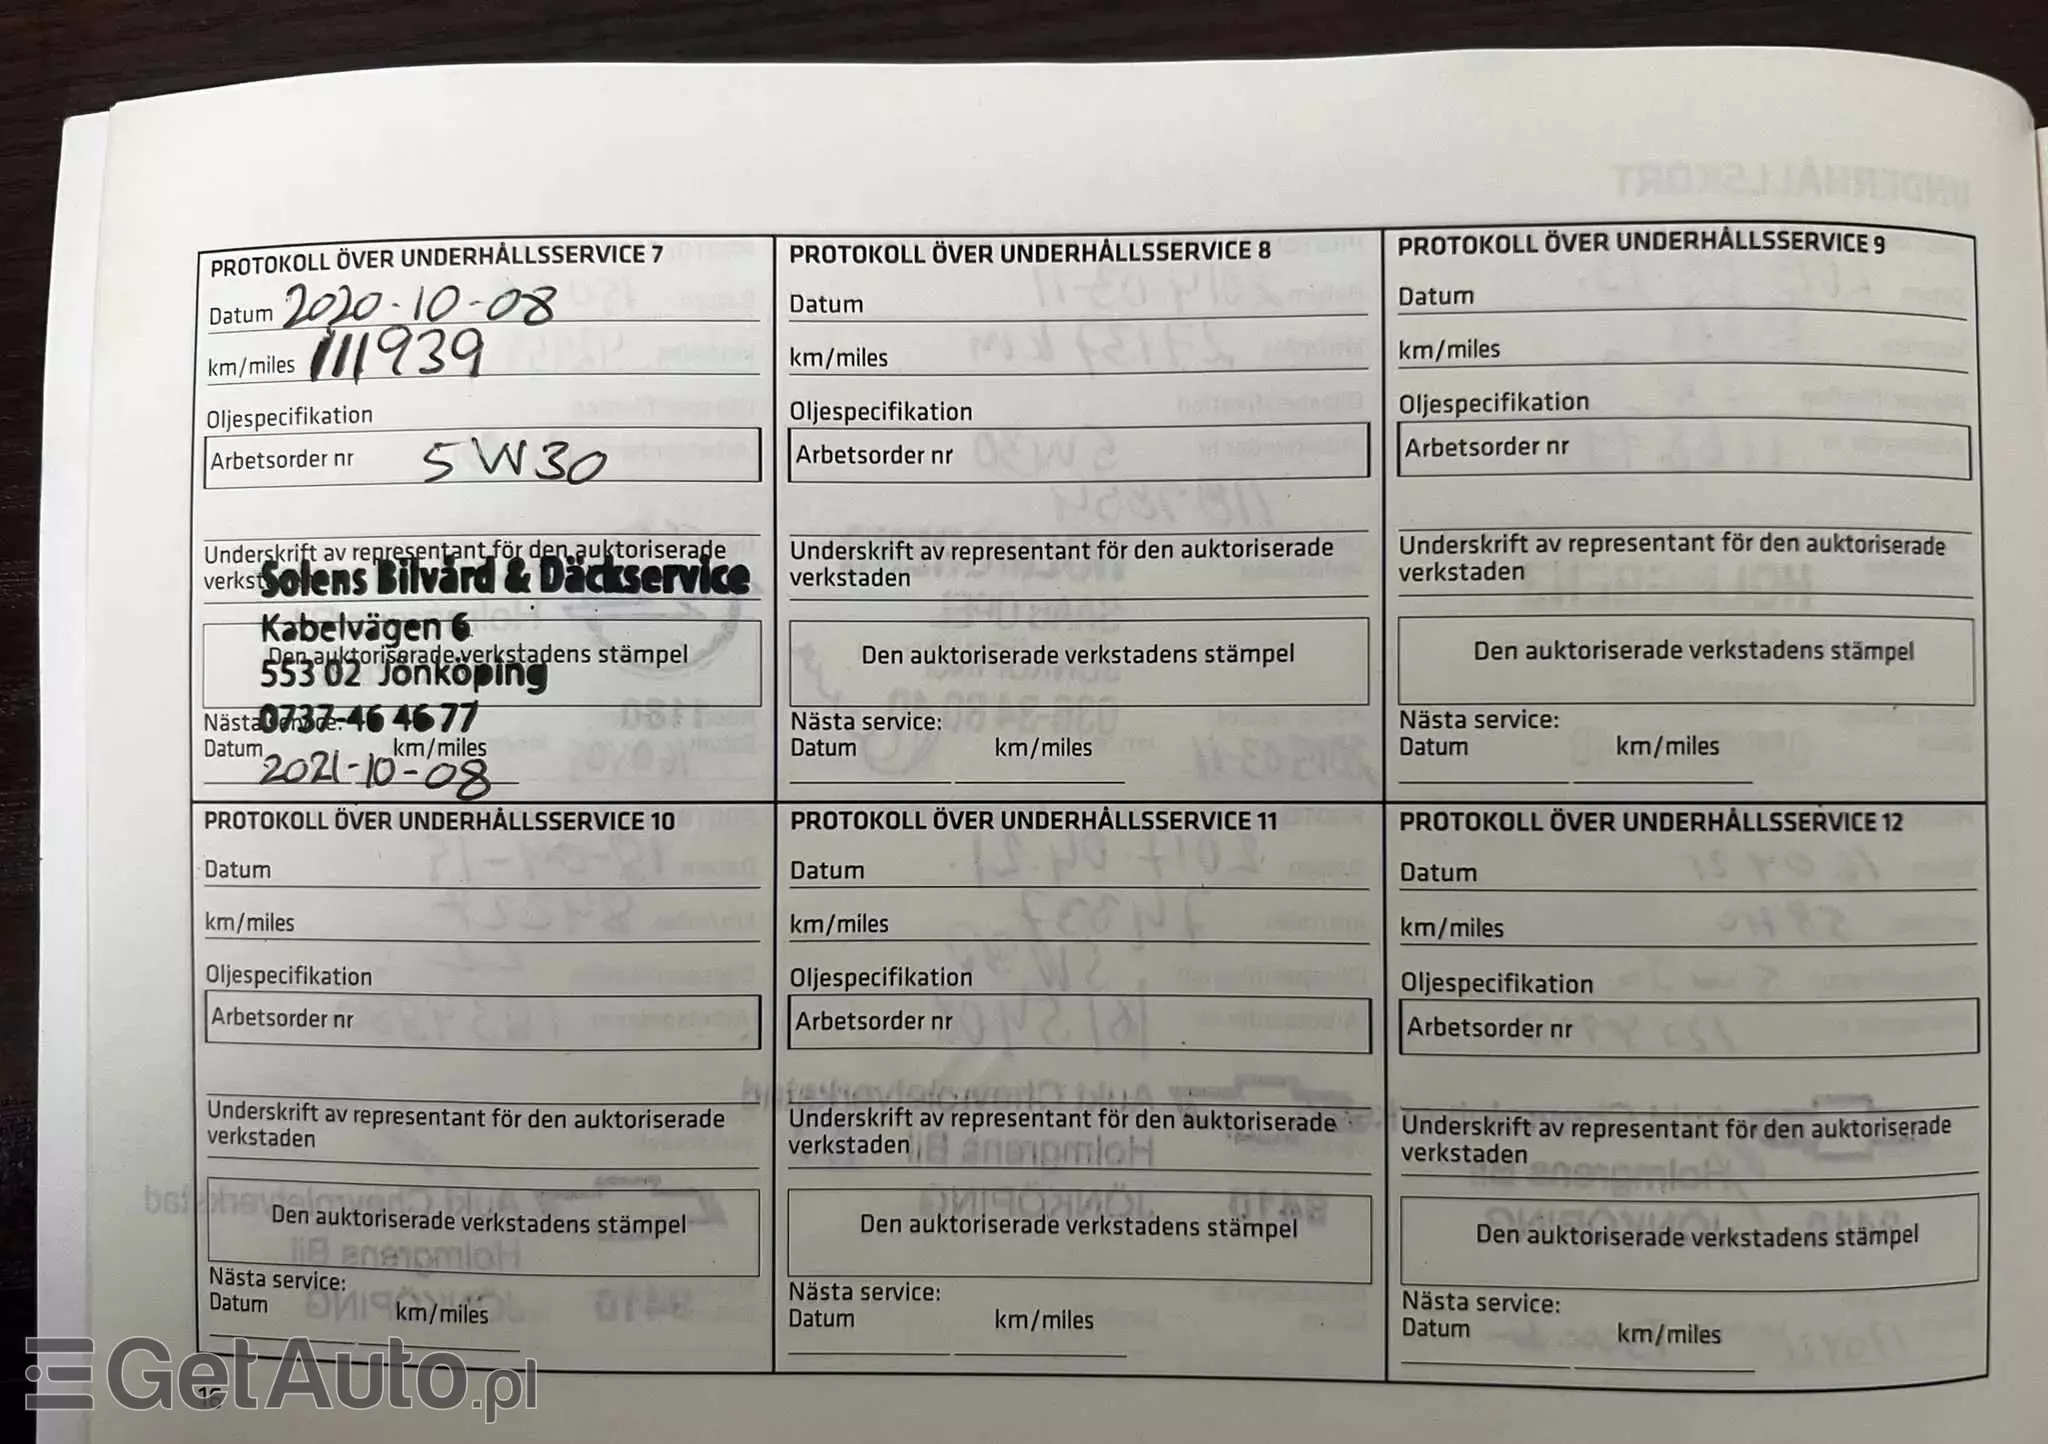 PROTOKOLL ÖVER UNDERHÅLLSSERVICE 7
Datum 2020-10-08
km/miles 111939
Oljespecifikation
Arbetsorder nr 5W30
Underskrift av representant för den auktoriserade
Solens Bilvård & Däckservice
Kabelvägen 6
Den auktoriserade verkstadens stämpel
553 02 Jönköping
Nästa
0737-46 46 77
Datum km/miles
2021-10-08
PROTOKOLL ÖVER UNDERHÅLLSSERVICE 8
Datum
km/miles
Oljespecifikation
Arbetsorder nr
Underskrift av representant för den auktoriserade
verkstaden
Den auktoriserade verkstadens stämpel
Nästa service:
Datum km/miles
PROTOKOLL ÖVER UNDERHÅLLSSERVICE 9
Datum
km/miles
Oljespecifikation
Arbetsorder nr
Underskrift av representant för den auktoriserade
verkstaden
Den auktoriserade verkstadens stämpel
Nästa service:
Datum km/miles
PROTOKOLL ÖVER UNDERHÅLLSSERVICE 10
Datum
km/miles
Oljespecifikation
Arbetsorder nr
Underskrift av representant för den auktoriserade
verkstaden
Den auktoriserade verkstadens stämpel
Nästa service:
Datum km/miles
PROTOKOLL ÖVER UNDERHÅLLSSERVICE 11
Datum
km/miles
Oljespecifikation
Arbetsorder nr
Underskrift av representant för den auktoriserade
verkstaden
Den auktoriserade verkstadens stämpel
Nästa service:
Datum km/miles
PROTOKOLL ÖVER UNDERHÅLLSSERVICE 12
Datum
km/miles
Oljespecifikation
Arbetsorder nr
Underskrift av representant för den auktoriserade
verkstaden
Den auktoriserade verkstadens stämpel
Nästa service:
Datum km/miles
16
GetAuto.pl